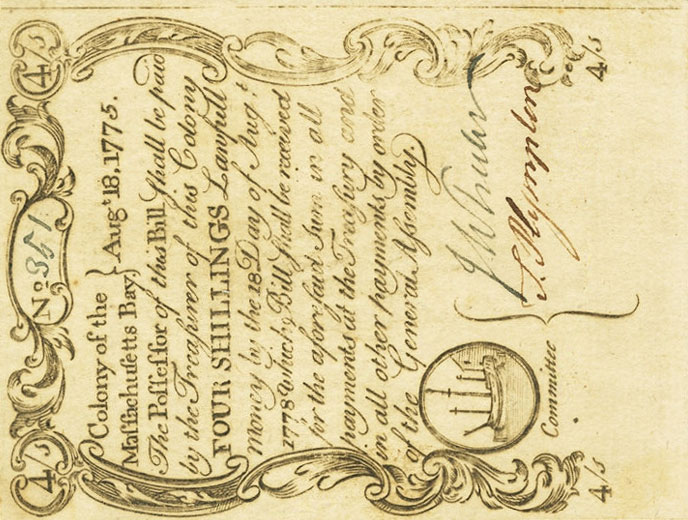 4/s No. 351 4/s
Colony of the } Augt. 18, 1775.
Massachusetts Bay,
The Possessor of this Bill shall be paid
by the Treasurer of this Colony
FOUR SHILLINGS Lawfull
Money by the 18 Day of Augt.
1778 Which Bill shall be received
for the aforesaid Sum in all
payments at the Treasury and
in all other payments by order
of the General Assembly.
Committee
4/s 4/s